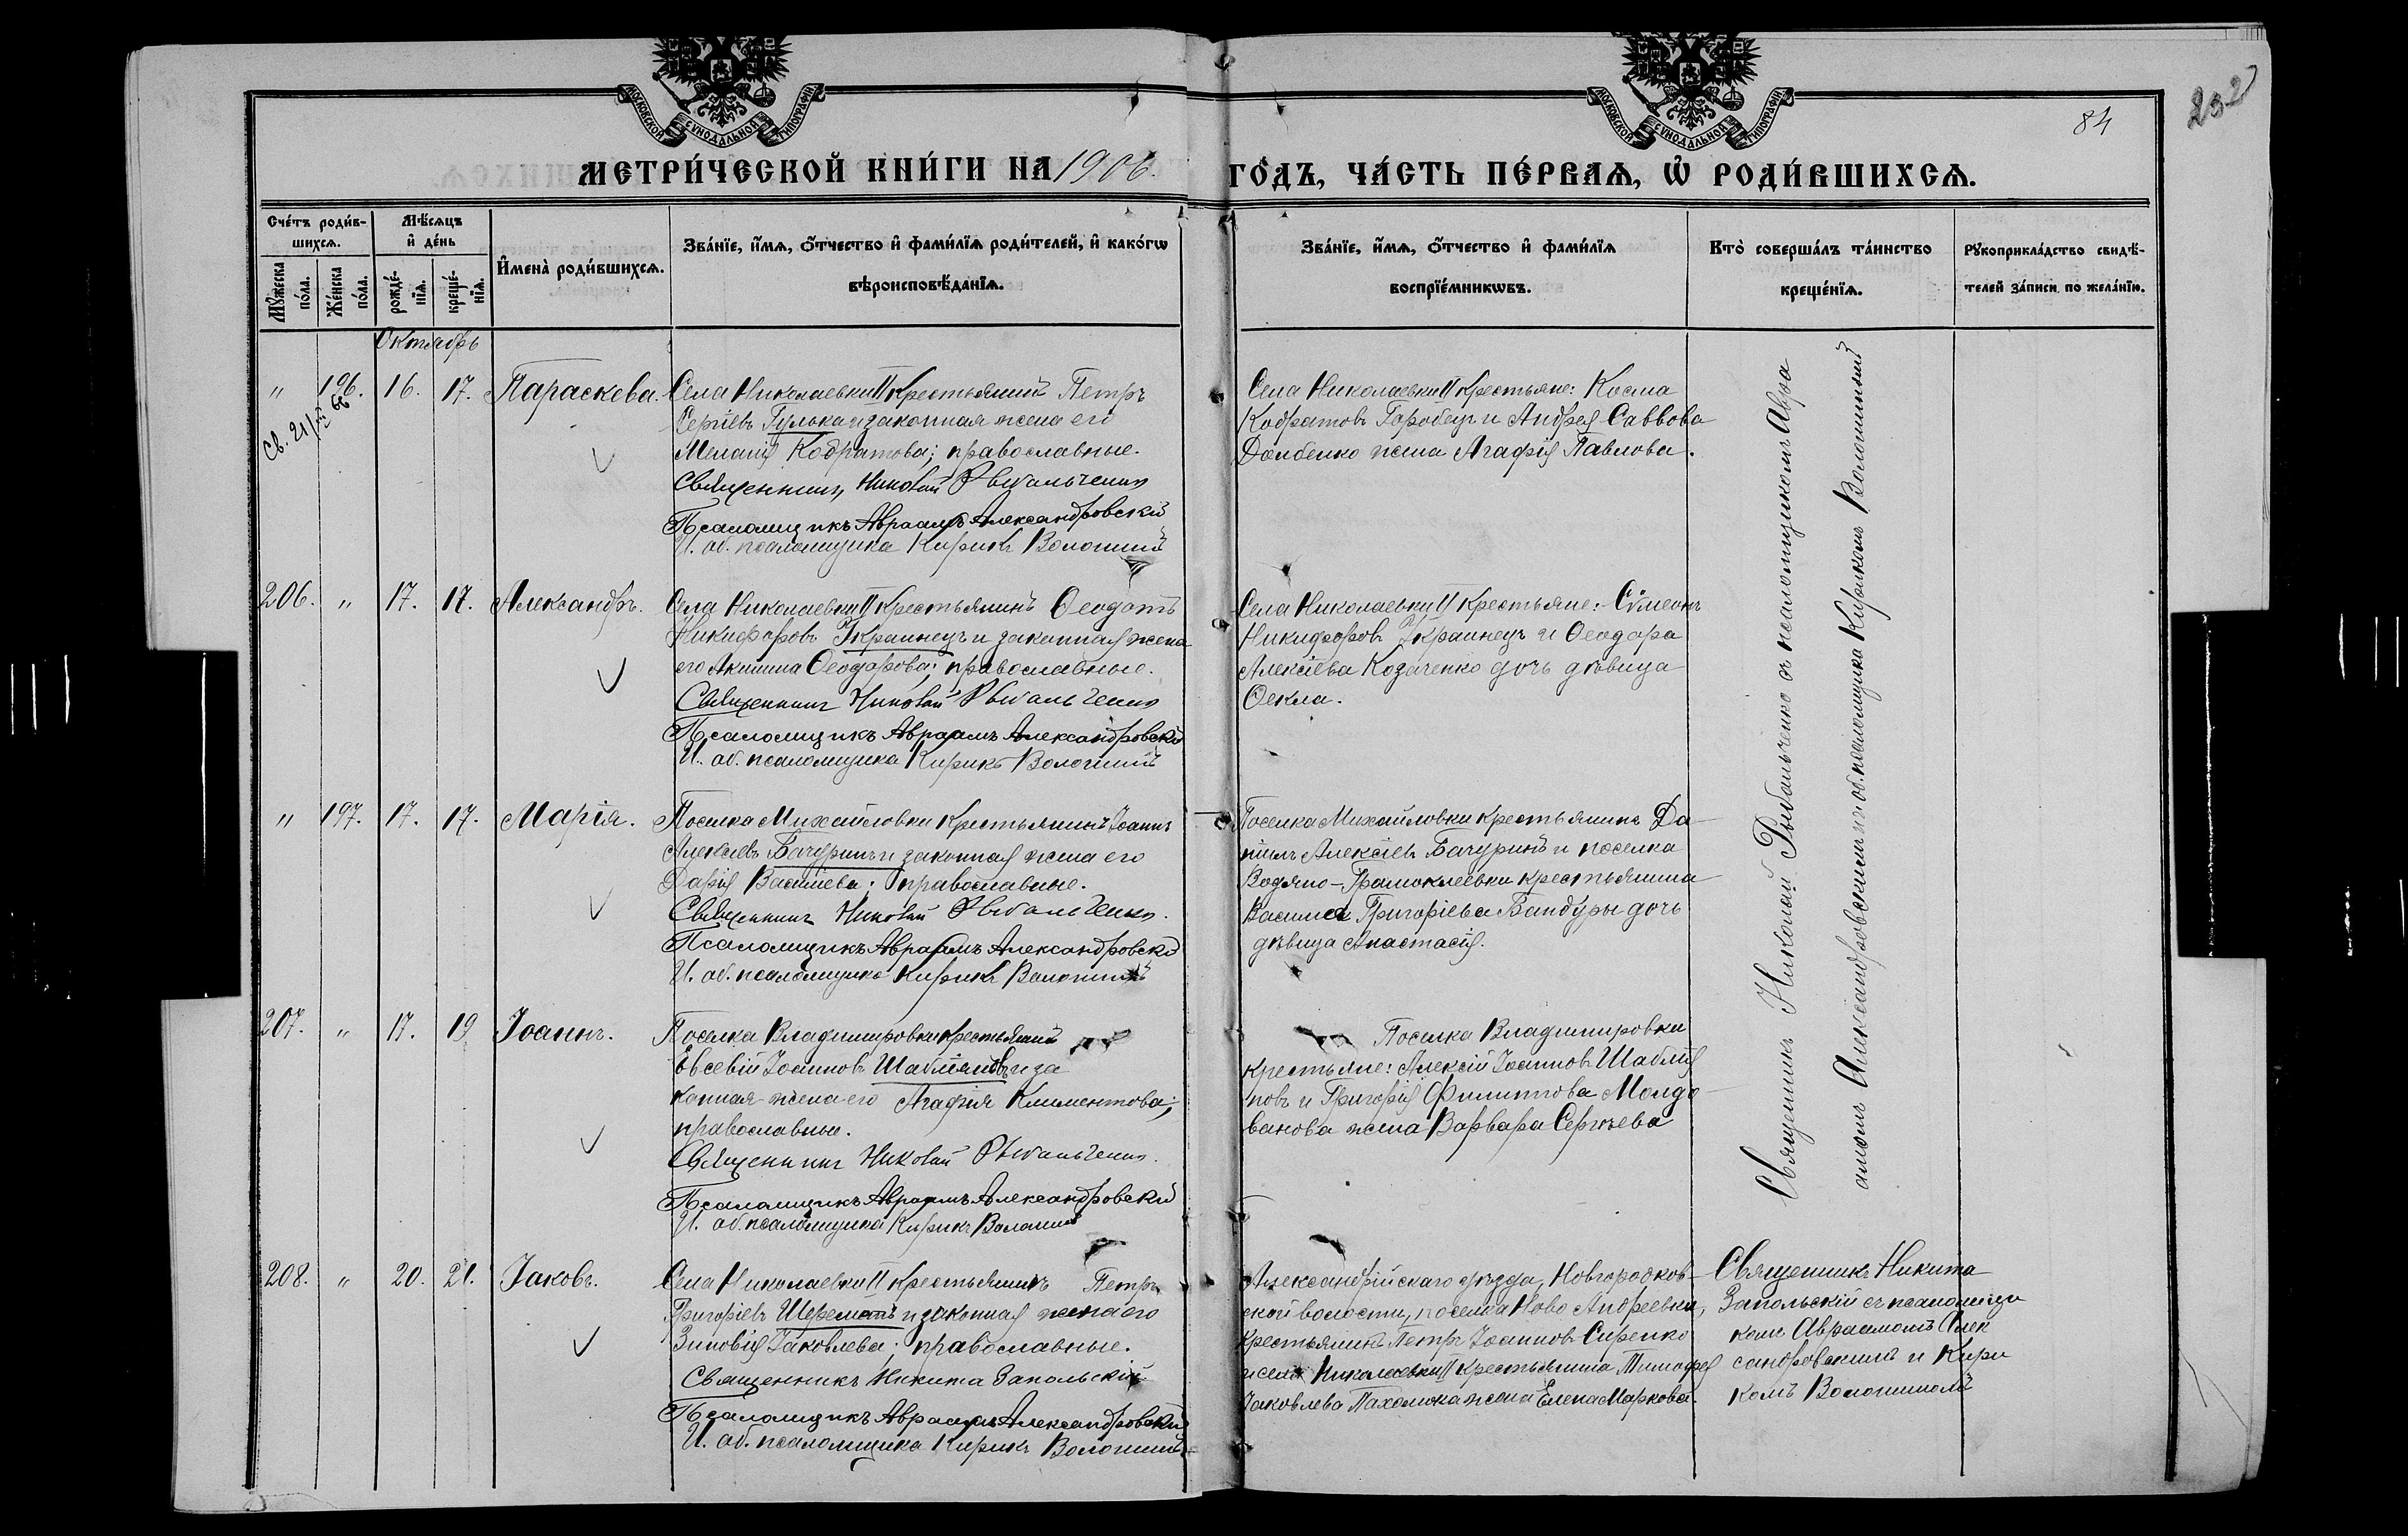 МОСКОВСКОЙ СУНОДАЛЬНОЙ ТИПОГРАФІИ
МОСКОВСКОЙ СУНОДАЛЬНОЙ ТИПОГРАФІИ
84
252
МЕТРИ́ЧЕСКОЙ КНИ́ГИ НА 1906. ГО́ДЪ, ЧА́СТЬ ПЕ́РВАЯ, Ѡ҆ РОДИ́ВШИХСЯ.
Сче́тъ роди́в-
шихся.
Мꙋ́жеска по́ла.
Же́нска по́ла.
Мѣ́сяцъ
и҆ де́нь
рожде́-
нїя.
креще́-
нїя.
И҆мена̀ роди́вшихся.
Зва́нїе, и҆́мя, ѻ҆́тчество и҆ фами́лїя роди́телей, и҆ како́гѡ
вѣроисповѣ́данїя.
Зва́нїе, и҆́мя, ѻ҆́тчество и҆ фами́лїя
воспрїе́мникѡвъ.
Кто̀ соверша́лъ та́инство
креще́нїя.
Рꙋкоприкла́дство свидѣ́-
телей за́писи по жела́нїю.
Октябрь
" 196. 16. 17. Параскева.
Св. 21/
Села Николаевки II крестьянинъ Петръ
Сергіевъ Гулька и законная жена его
Меланія Кодратова; православные.
Священникъ Николай Рыбальченко
Псаломщикъ Авраамъ Александровскій
И. об. псаломщика Кирикъ Волошинъ
Села Николаевки II крестьяне: Косма
Кодратовъ Горобецъ и Андрея Саввова
Долбенко жена Агафія Павлова.
206. " 17. 17. Александръ.
Села Николаевки II крестьянинъ Ѳеодотъ
Никифоровъ Украинецъ и законная жена
его Акилина Ѳеодорова; православные.
Священникъ Николай Рыбальченко
Псаломщикъ Авраамъ Александровскій
И. об. псаломщика Кирикъ Волошинъ
Села Николаевки II крестьяне: Сѵмеонъ
Никифоровъ Украинецъ и Ѳеодора
Алексіева Козаченко дочь дѣвица
Ѳекла.
" 197. 17. 17. Марія.
Поселка Михайловки крестьянинъ Іоаннъ
Алексіевъ Бачуринъ и законная жена его
Дарія Василіева; православные.
Священникъ Николай Рыбальченко.
Псаломщикъ Авраамъ Александровскій
И. об. псаломщика Кирикъ Волошинъ
Поселка Михайловки крестьянинъ Да-
ніилъ Алексіевъ Бачуринъ и поселка
Водяно-Грамоклеевки крестьянина
Василія Григоріева Бандуры дочь
дѣвица Анастасія.
207. " 17. 19 Іоаннъ.
Поселка Владимировки крестьянинъ
Евсевій Іоанновъ Шабліяновъ и за
конная жена его Агафія Климентова;
православные.
Священникъ Николай Рыбальченко.
Псаломщикъ Авраамъ Александровскій
И. об. псаломщика Кирикъ Волошинъ
Поселка Владимировки
крестьяне: Алексій Іоанновъ Шаблія
новъ и Григорія Филиппова Молдо-
ванова жена Варвара Сергѣева
Священникъ Николай Рыбальченко съ псаломщикомъ Авра
амомъ Александровскимъ и и. об. псаломщика Кирикомъ Волошинымъ
208. " 20. 21. Іаковъ.
Села Николаевки II крестьянинъ Петръ
Григоріевъ Шереметъ и законная жена его
Зиновія Іаковлева; православные.
Священникъ Никита Запольскій
Псаломщикъ Авраамъ Александровскій
И. об. псаломщика Кирикъ Волошинъ
Александрійскаго уѣзда, Новгородков-
ской волости, поселка Ново Андреевки,
крестьянинъ Петръ Іоанновъ Сиренко
и села Николаевки II крестьянина Тимофея
Іаковлева Пахолюка жена Елена Маркова.
Священникъ Никита
Запольскій съ псаломщи
комъ Авраамомъ Алек
сандровскимъ и Кири
комъ Волошиномъ